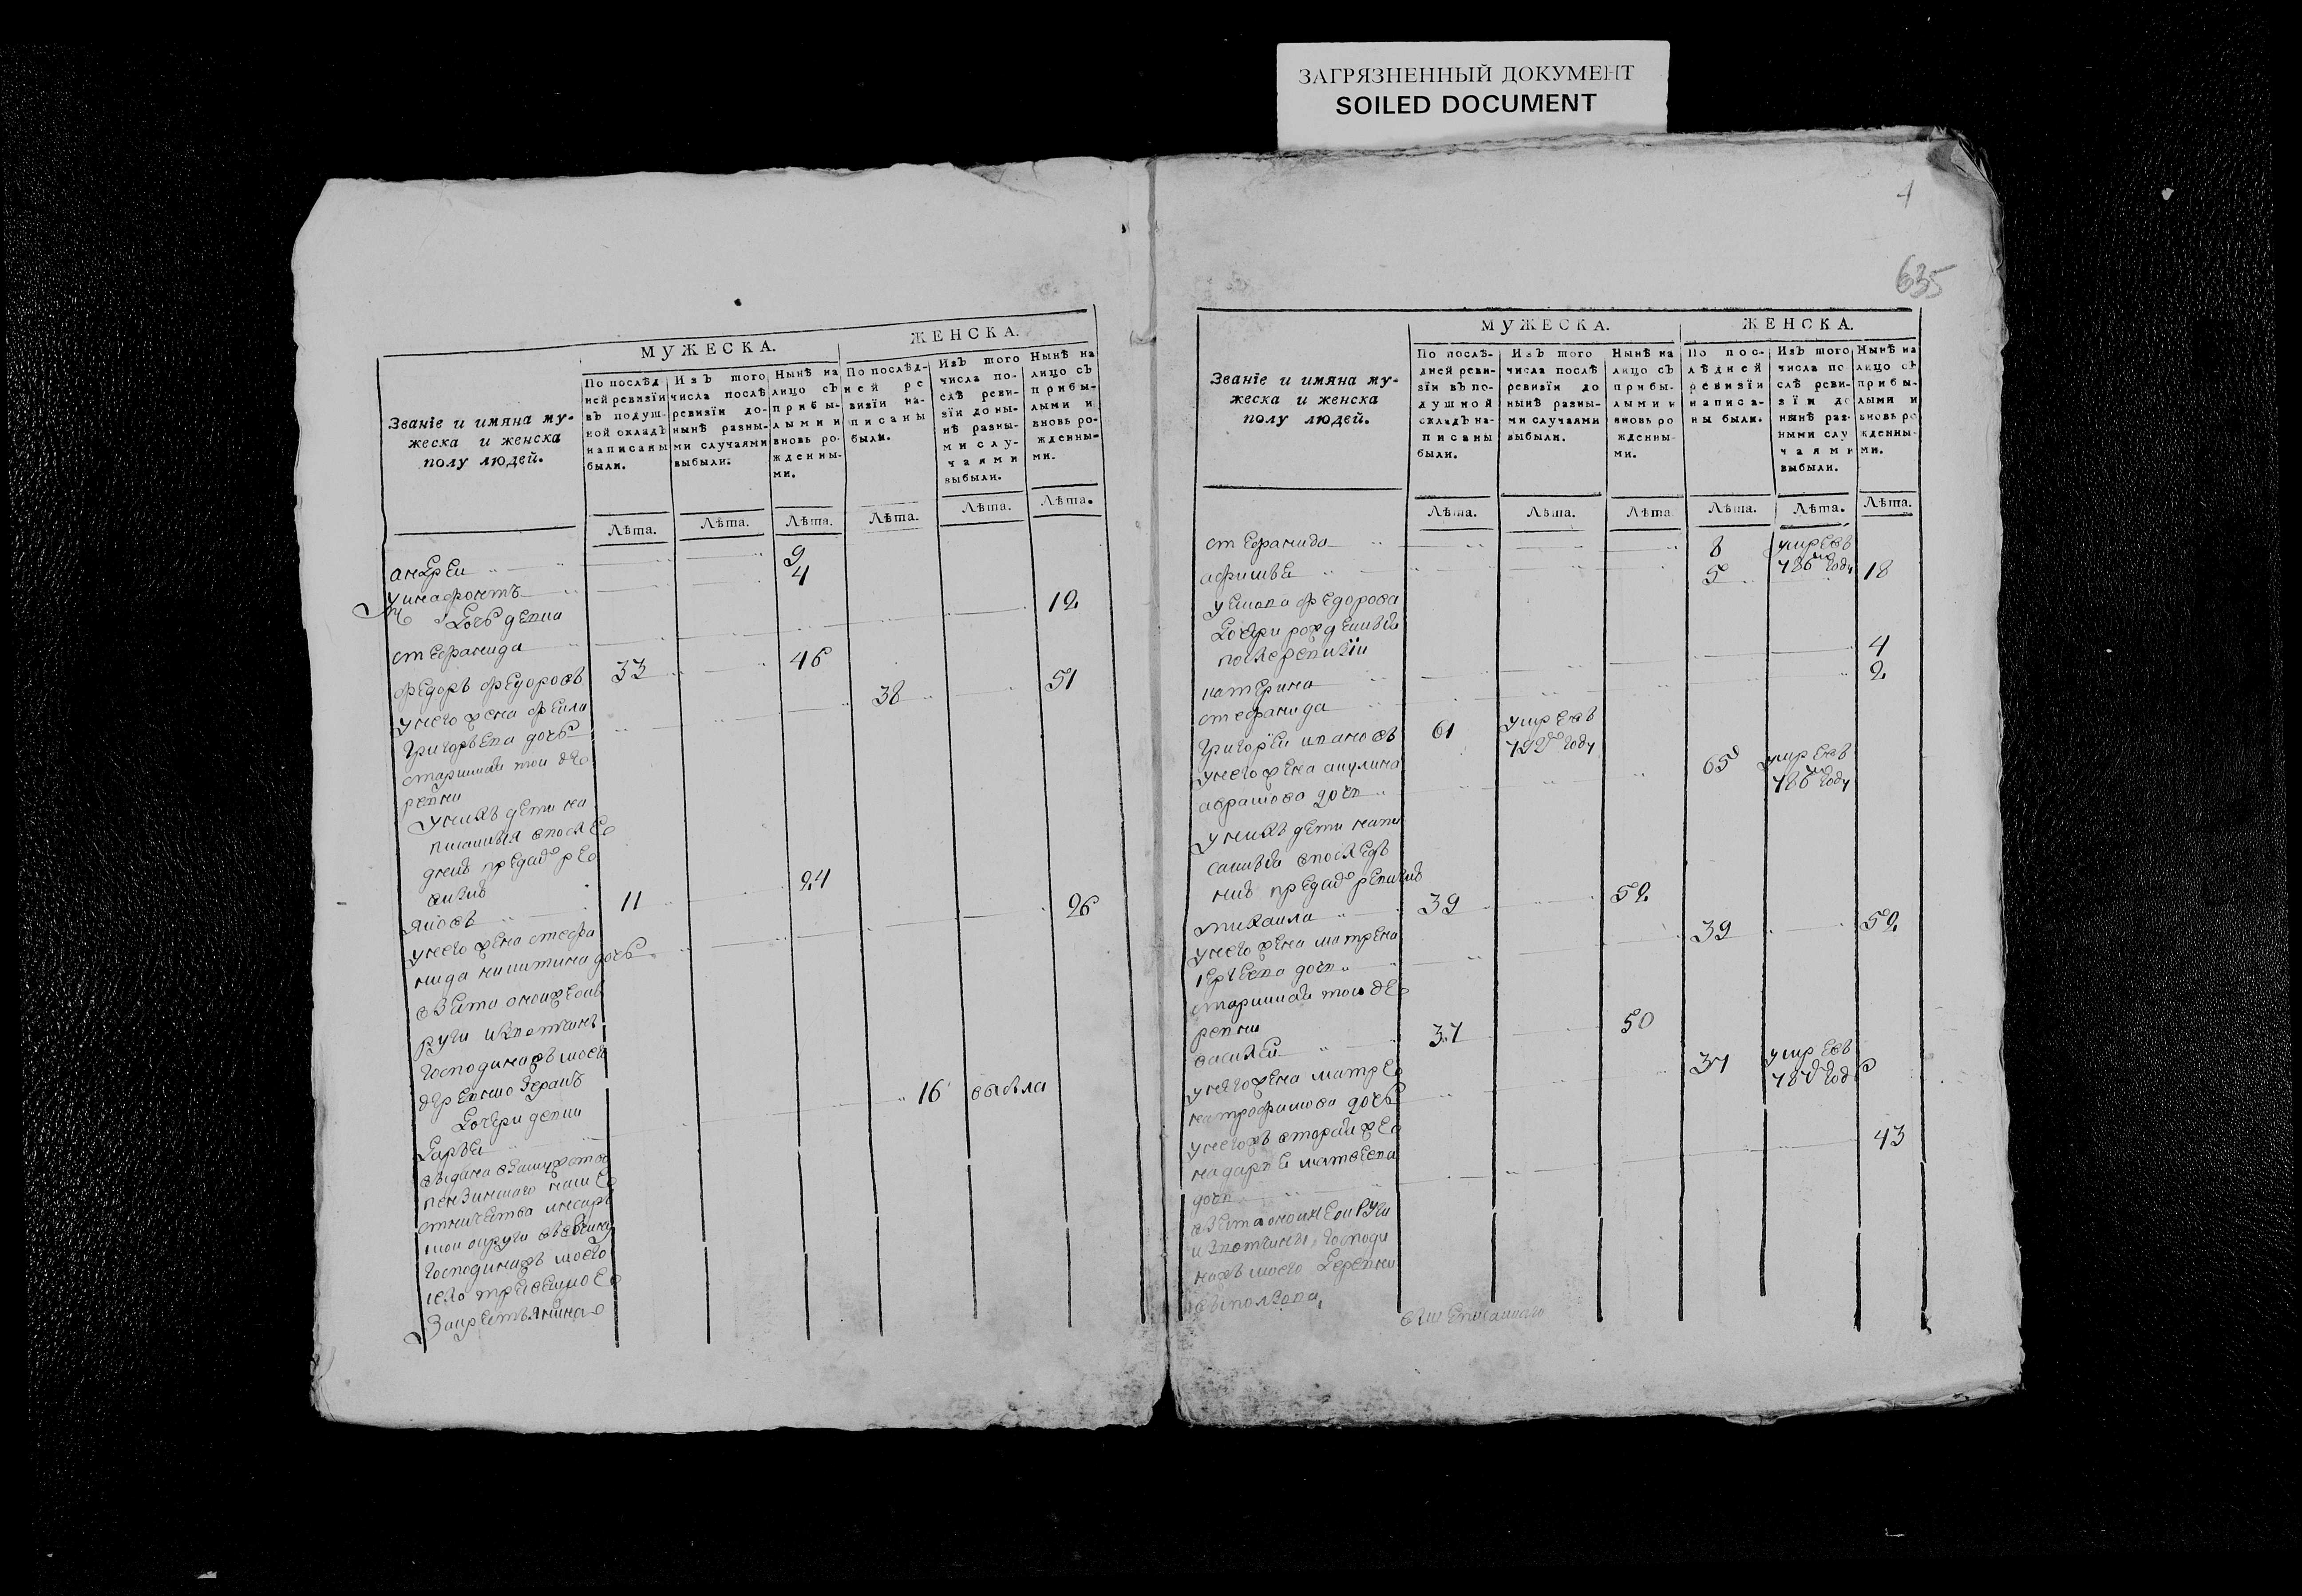 ЗАГРЯЗНЕННЫЙ ДОКУМЕНТ
SOILED DOCUMENT
МУЖЕСКА.
ЖЕНСКА.
Званїе и имяна му-
жеска и женска
полу людей.
По послѣд
ней ревизїи
въ подуш-
ной окладъ
написаны
были.
Изъ того
числа послѣ
ревизїи до-
нынѣ разны-
ми случаями
выбыли.
Нынѣ на
лицо съ
прибы-
лыми и
вновь ро-
жденны-
ми.
По послѣд-
ней ре
визїи на-
писаны
были.
Изъ того
числа по-
слѣ реви-
зїи до ны-
нѣ разны-
ми слу-
чаями
выбыли.
Нынѣ на
лицо съ
прибы-
лыми и
вновь ро-
жденны-
ми.
Лѣта.
Лѣта.
Лѣта.
Лѣта.
Лѣта.
Лѣта.
андреи 9
4
дочь девка
стефанида 12
федоръ федоровъ 33 46
у него жена
григорьева дочь 38 51
старинная тои де
ревни
у нихъ дети на
писанныя в после
днеи пред сеи ре
визии
яковъ 11 24
у него жена стефа
нида никитина дочь 26
взята
господина жъ моего
деревни
дочери девки
дарья 16 выбыла
выдана взамужство
пензинского наме
стничества инсар
скои округи въ вотчину
господина жъ моего
село
за крестьянина
4
635
МУЖЕСКА.
ЖЕНСКА.
Званїе и имяна му-
жеска и женска
полу людей.
По послѣ-
дней реви-
зїи въ по-
душной
окладъ на-
писаны
были.
Изъ того
числа послѣ
ревизїи до
нынѣ разны-
ми случаями
выбыли.
Нынѣ на
лицо съ
прибы-
лыми и
вновь ро
жденны-
ми.
По пос-
лѣдней
ревизїи
написа-
ны были.
Изъ того
числа по
слѣ реви-
зїи до
нынѣ раз-
ными слу
чаями
выбыли.
Нынѣ на
лицо съ
прибы-
лыми и
вновь ро
жденны-
ми.
Лѣта.
Лѣта.
Лѣта.
Лѣта.
Лѣта.
Лѣта.
стефанида 8 умре въ
786 году
афимья 5 18
у федорова
дочери рожденныя
после ревизии
катерина 4
стефанида 2
григореи ивановъ 61 умре въ
году
у него жена акулина
абрамова дочь 65 умре въ
786 году
у нихъ дети напи
санныя в послед
неи пред сеи ревизии
михаила 39 52
у него жена матрена
дочь 39 52
старинная тои де
ревни
василеи 37 50
у него жена матре
на трофимова дочь 37 умре въ
году
у него жъ вторая же
на дарья матвеева
дочь 43
взята
из вотчины господи
на жъ моего деревни